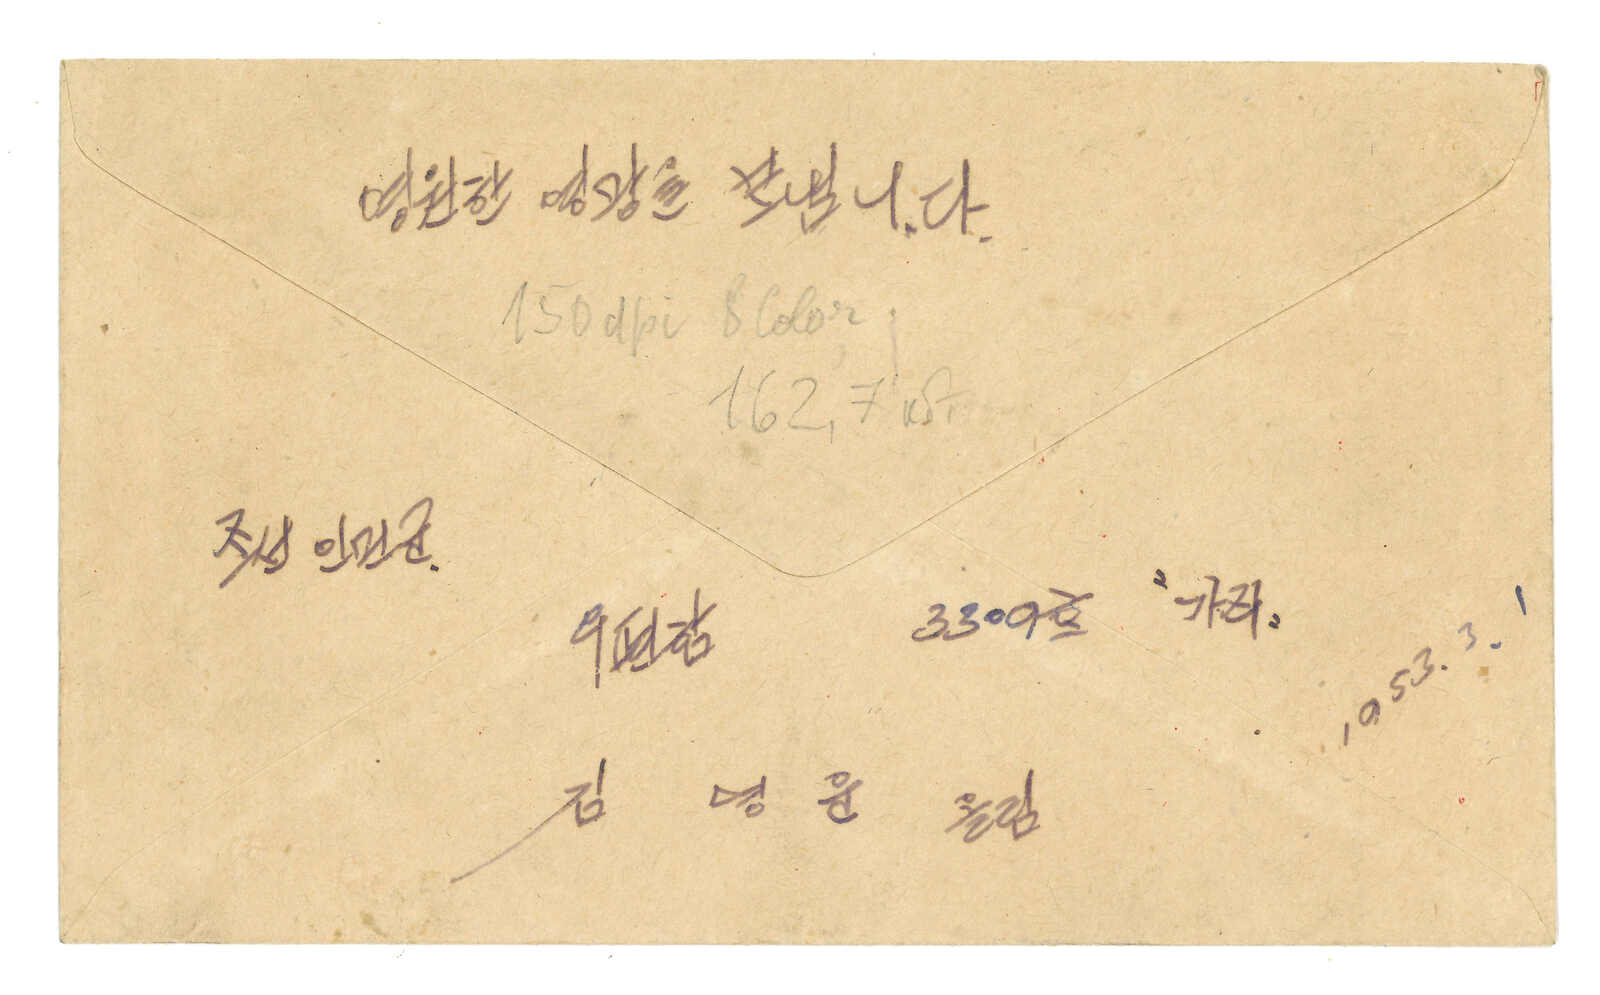 영원한 영광을 보냅니다.
150dpi 8 Color
162,7
조선 인민군.
우편함 3309호 "가"
1953.3.1
김 영 윤 올림